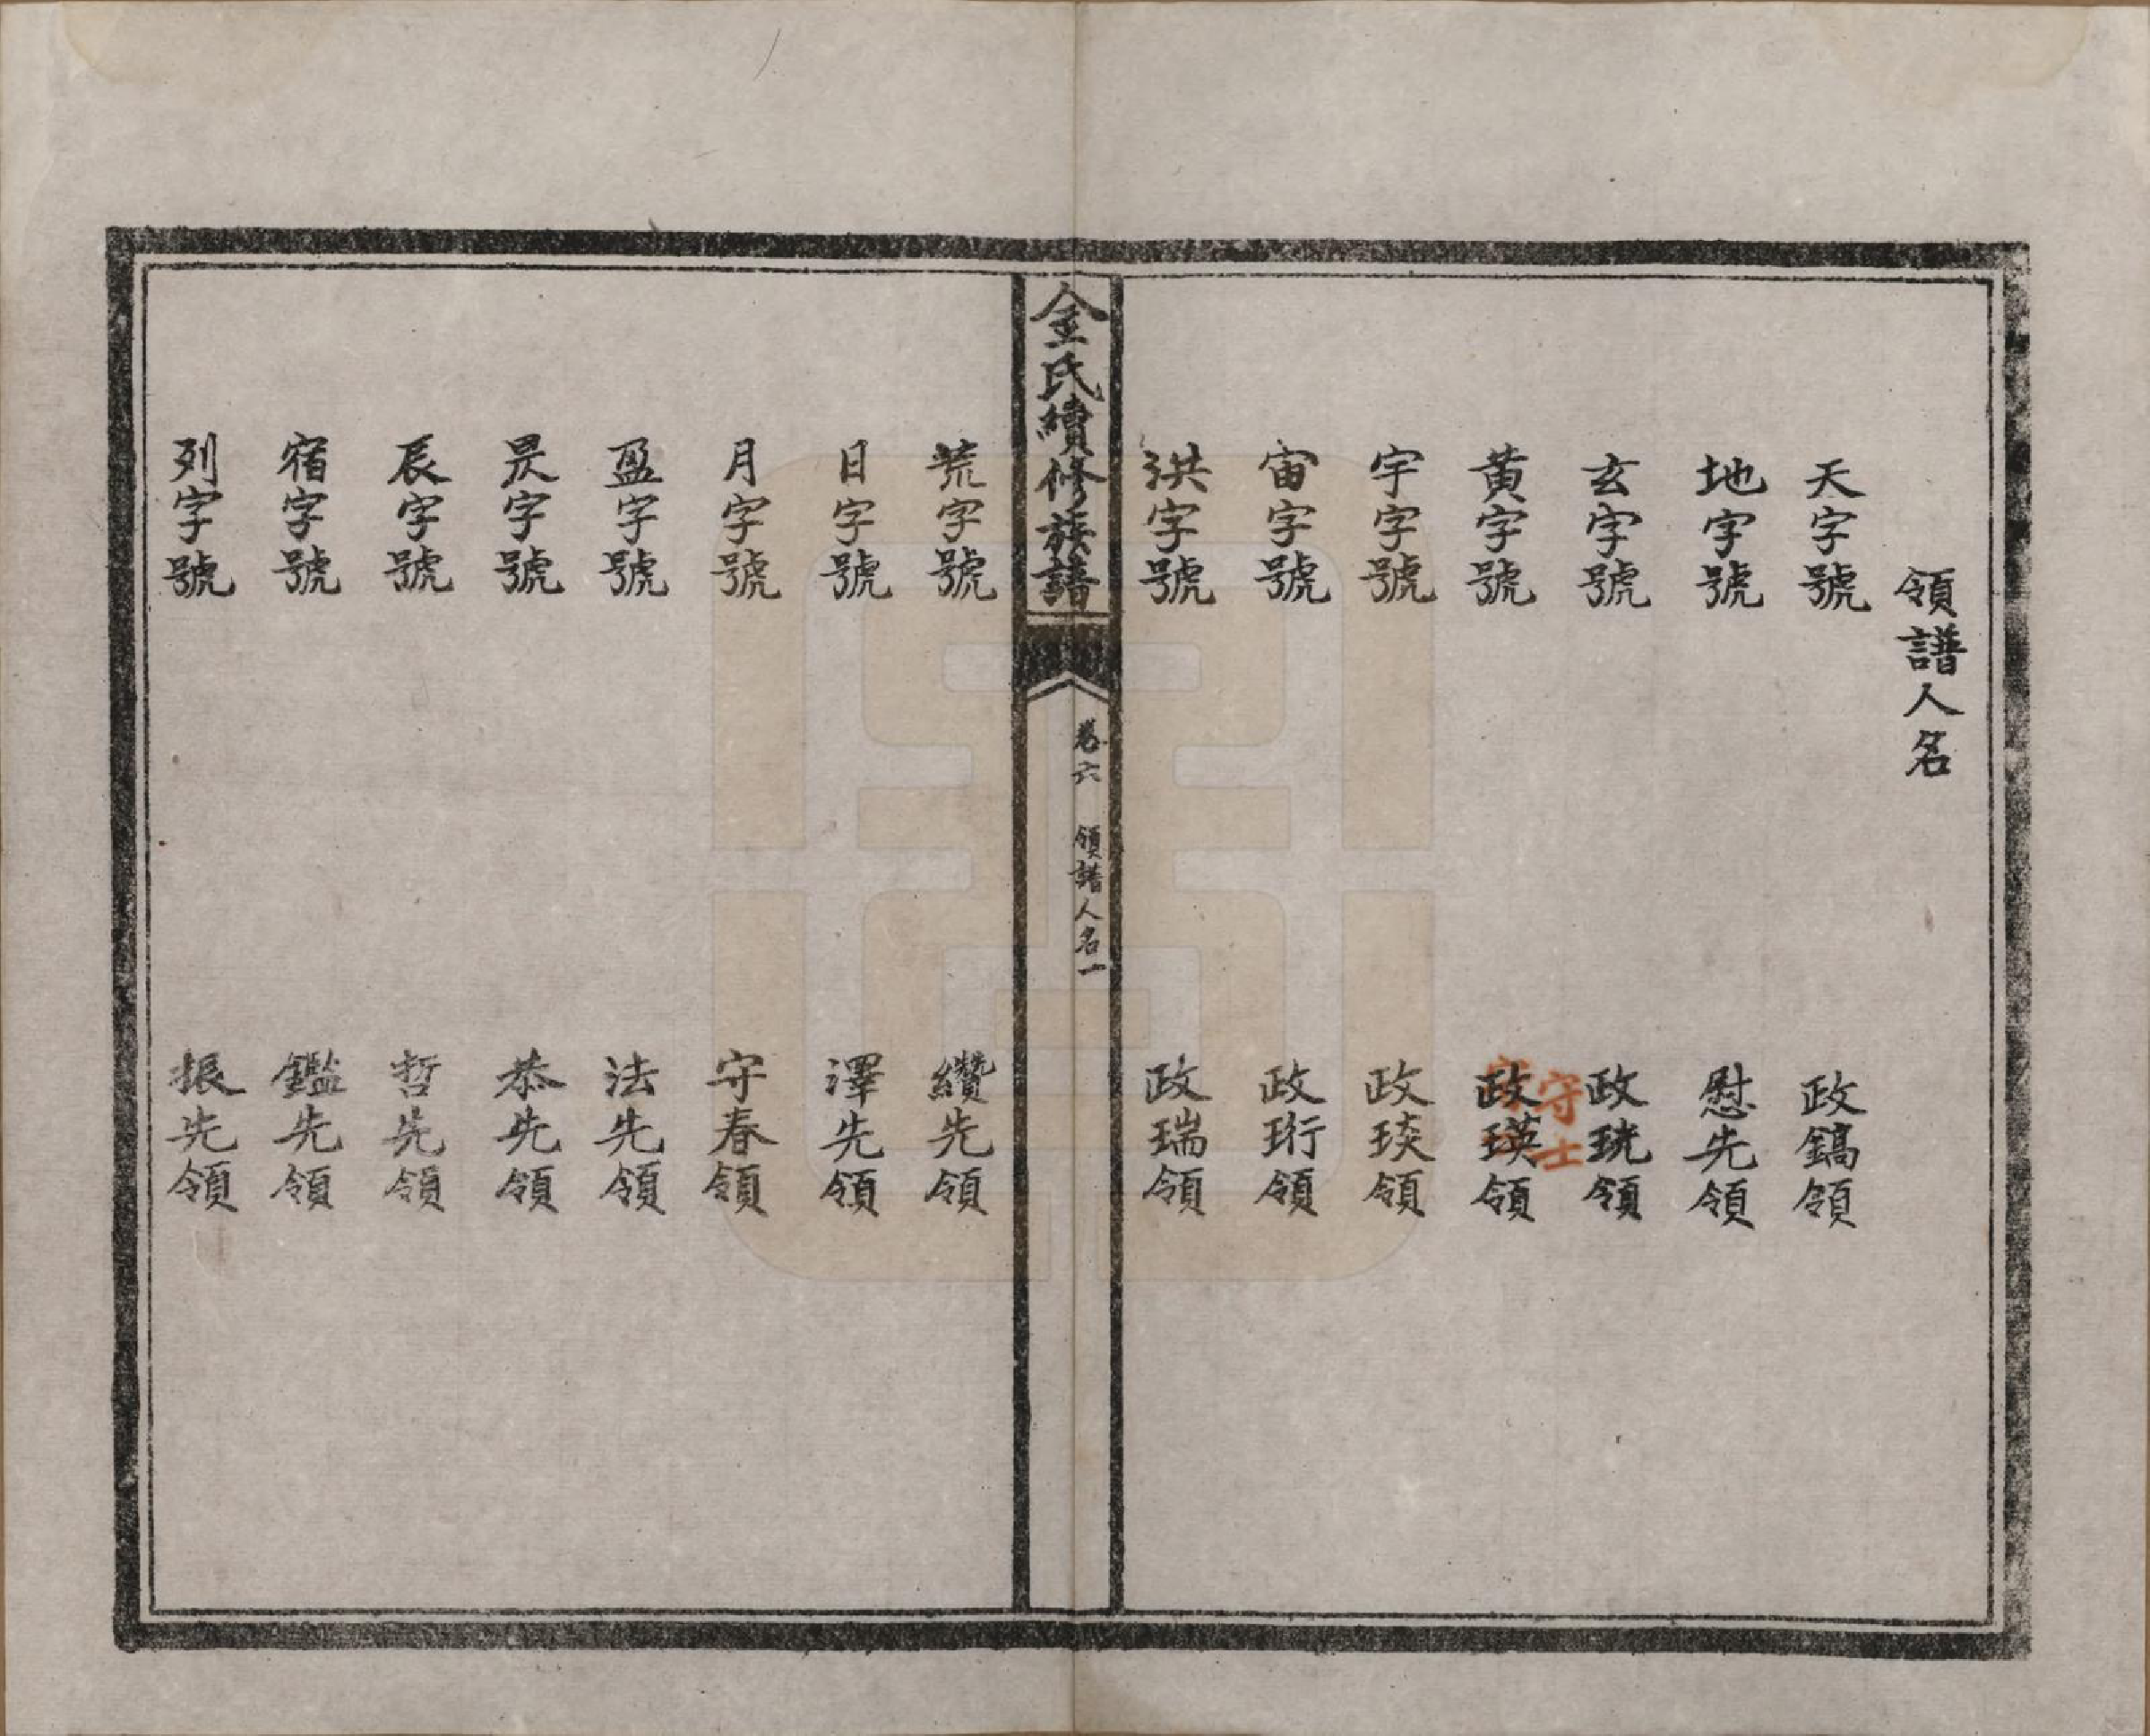 領譜人名
天字號 政鎬領
地字號 慰先領
玄字號 政珖領
守士
黄字號 政瑛領
宇字號 政琰領
宙字號 政珩領
洪字號 政瑞領
金氏續修族譜 卷六 領譜人名一
荒字號 纘先領
日字號 澤先領
月字號 守春領
盈字號 法先領
昃字號 恭先領
辰字號 哲先領
宿字號 鑑先領
列字號 振先領